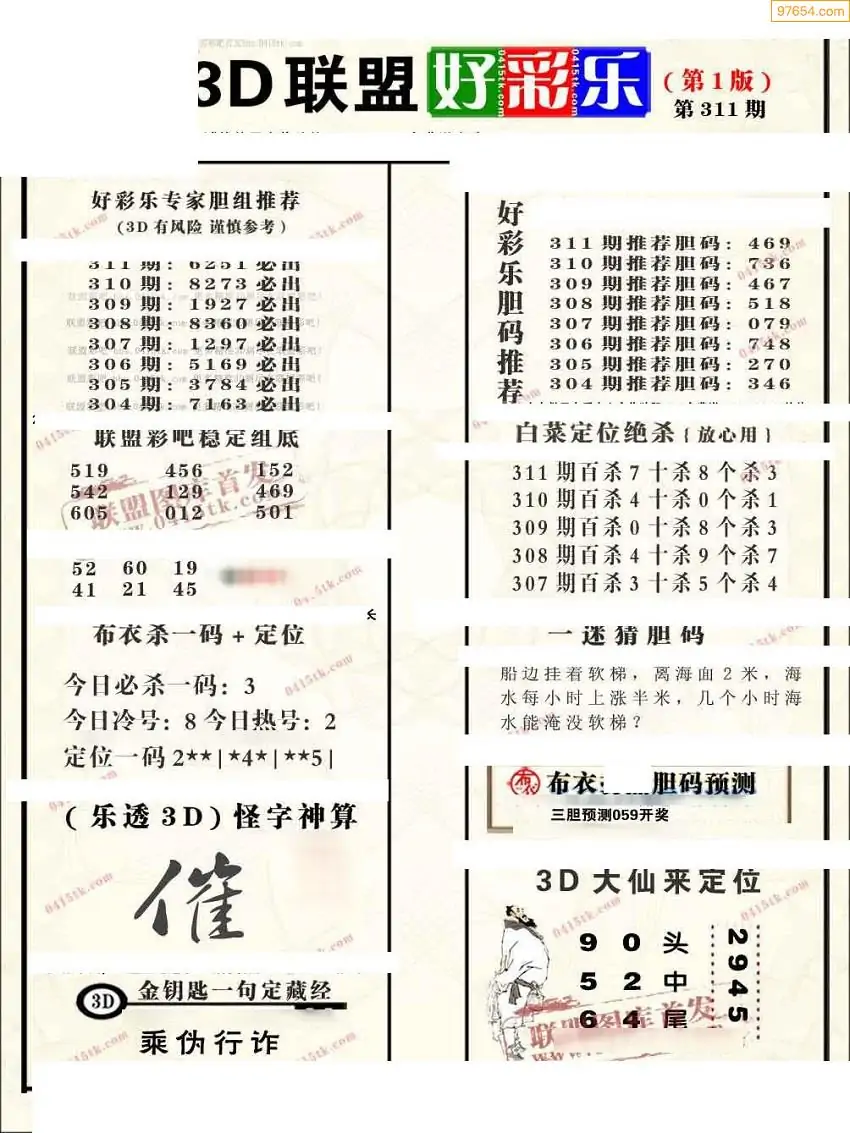 97654.com
3D联盟好彩乐(第1版)
第311期
好彩乐专家胆组推荐
(3D有风险 谨慎参考)
311期:6251必出
310期:8273必出
309期:1927必出
308期:8360必出
307期:1297必出
306期:5169必出
305期:3784必出
304期:7163必出
联盟彩吧稳定组底
519 456 152
542 129 469
605 012 501
52 60 19
41 21 45
布衣杀一码+定位
今日必杀一码:3
今日冷号:8今日热号:2
定位一码2**|*4*|**5|
(乐透3D)怪字神算
催
3D 金钥匙一句定藏经
乘伪行诈
好彩乐胆码推荐
311期推荐胆码:469
310期推荐胆码:736
309期推荐胆码:467
308期推荐胆码:518
307期推荐胆码:079
306期推荐胆码:748
305期推荐胆码:270
304期推荐胆码:346
白菜定位绝杀{放心用}
311期百杀7十杀8个杀3
310期百杀4十杀0个杀1
309期百杀0十杀8个杀3
308期百杀4十杀9个杀7
307期百杀3十杀5个杀4
一迷猜胆码
船边挂着软梯,离海面2米,海
水每小时上涨半米,几个小时海
水能淹没软梯?
布衣 胆码预测
三胆预测059开奖
3D大仙来定位
9 0 头
5 2 中
6 4 尾
2945
联盟图库首发
0415tk.com